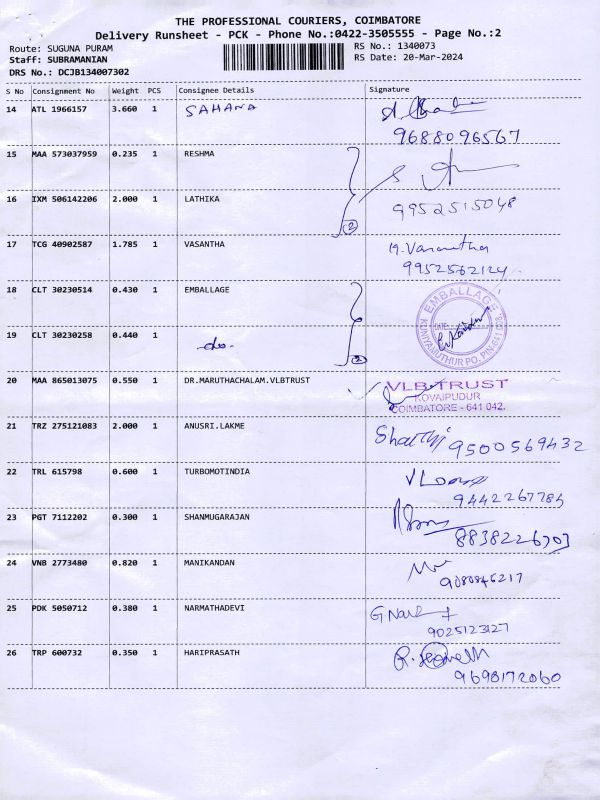 THE PROFESSIONAL COURIERS, COIMBATORE
Delivery Runsheet - PCK - Phone No.:0422-3505555 - Page No.:2
Route: SUGUNA PURAM
RS No.: 1340073
Staff: SUBRAMANIAN
RS Date: 20-Mar-2024
DRS No.: DCJB134007302
S No Consignment No Weight PCS Consignee Details Signature
14 ATL 1966157 3.660 1 SAHANA
9688096567
15 MAA 573037959 0.235 1 RESHMA
16 IXM 506142206 2.000 1 LATHIKA
9952515048
2
17 TCG 40902587 1.785 1 VASANTHA Vasantha
9952562124
18 CLT 30230514 0.430 1 EMBALLAGE
EMBALLAGE
DATE:
KUNIYAMUTHUR PO, PIN-641 008.
19 CLT 30230258 0.440 1 -do-
2
20 MAA 865013075 0.550 1 DR.MARUTHACHALAM.VLBTRUST
VLB TRUST
KOVAIPUDUR
COIMBATORE - 641 042.
21 TRZ 275121083 2.000 1 ANUSRI.LAKME
9500569432
22 TRL 615798 0.600 1 TURBOMOTINDIA
23 PGT 7112202 0.300 1 SHANMUGARAJAN
8838226703
24 VNB 2773480 0.820 1 MANIKANDAN
25 PDK 5050712 0.380 1 NARMATHADEVI
9025123127
26 TRP 600732 0.350 1 HARIPRASATH
9698172060